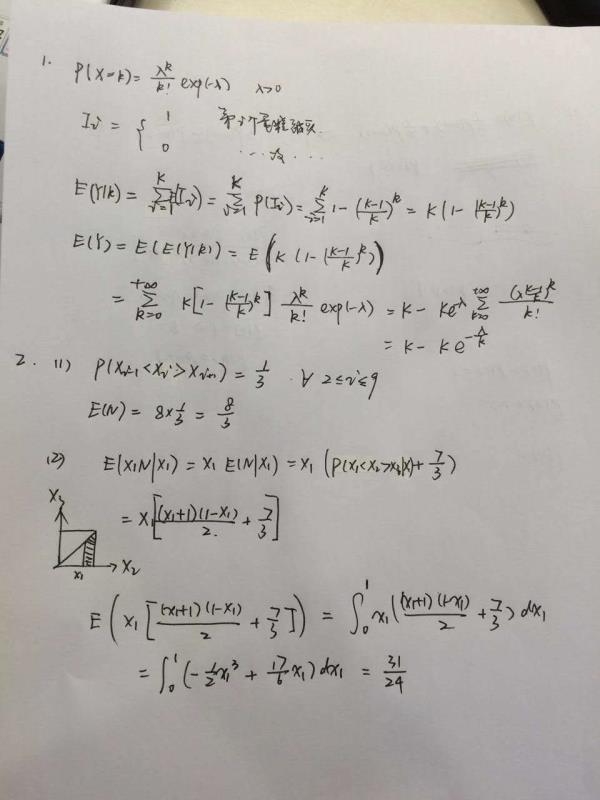 1.
P(X=k) = λ^k/k! exp(-λ)  λ>0
I_i = { 1  第i个
0  ...
E(Y|k) = Σ_{i=1}^{K} E(I_i) = Σ_{i=1}^{K} P(I_i) = Σ_{i=1}^{K} 1-(K-1/K)^k = K(1-(K-1/K)^k)
E(Y) = E(E(Y|k)) = E(K(1-(K-1/K)^k))
= Σ_{k=0}^{+∞} K[1-(K-1/K)^k] λ^k/k! exp(-λ) = K - Ke^{-λ} Σ_{k=0}^{+∞} (λ K-1/K)^k/k!
= K - Ke^{-λ/K}
2. (1) P(X_{i-1}<X_i>X_{i+1}) = 1/3 . ∀ 2≤i≤9
E(N) = 8×1/3 = 8/3
(2) E(X_1N|X_1) = X_1 E(N|X_1) = X_1 (P(X_1<X_2>X_3|X_1)+7/3)
= X_1[(X_1+1)(1-X_1)/2 + 7/3]
X_3
X_1
X_2
E(X_1[(X_1+1)(1-X_1)/2 + 7/3]) = ∫_0^1 X_1((X_1+1)(1-X_1)/2 + 7/3) dX_1
= ∫_0^1 (-1/2 X_1^3 + 17/6 X_1) dX_1 = 31/24